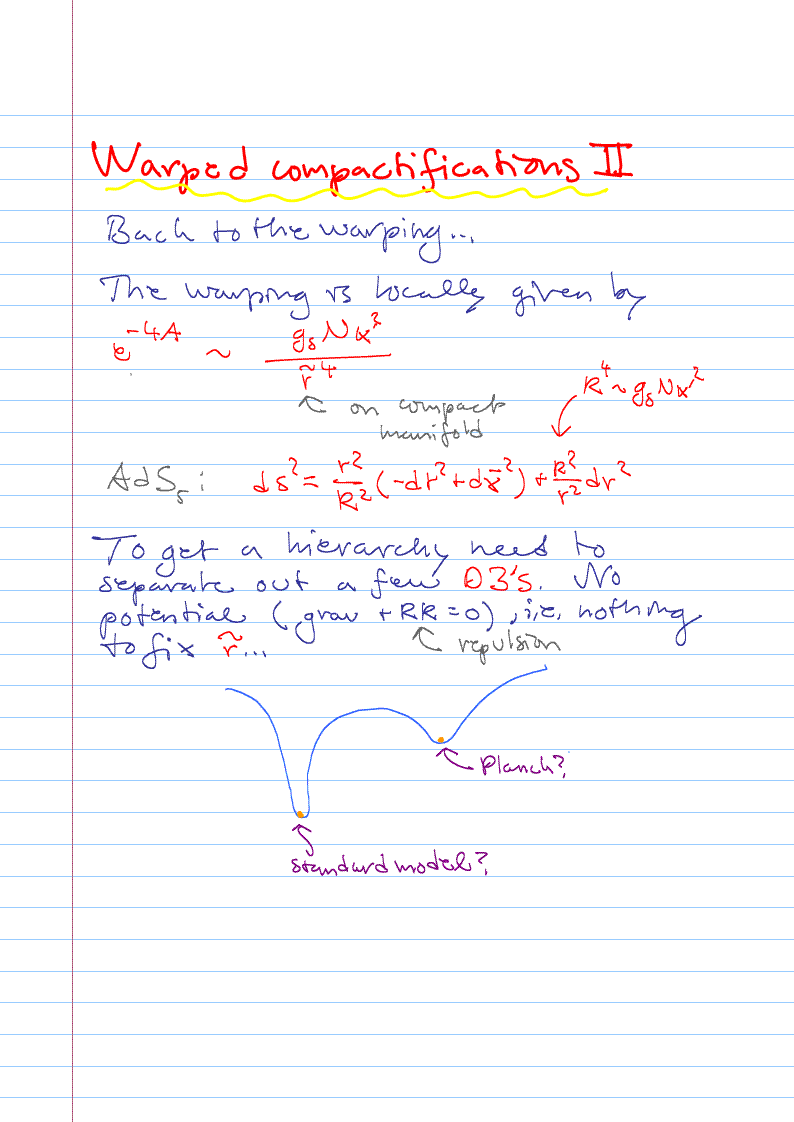 Warped compactifications II
Back to the warping...
The warping is locally given by
e^{-4A} ~ g_s N α'^2 / r̃^4
R^4 ~ g_s N α'^2
on compact
manifold
AdS_5 : ds^2 = r^2/R^2 (-dt^2 + dx̄^2) + R^2/r^2 dr^2
To get a hierarchy need to
separate out a few D3's. No
potential (grav + RR = 0), i.e. nothing
to fix r̃...
repulsion
Planck?
standard model?